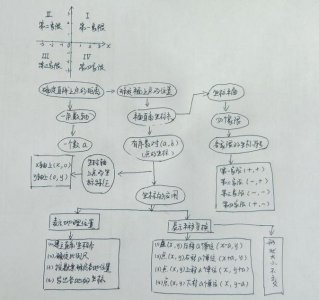 Ⅱ Ⅰ
第二象限 第一象限
-3 -2 -1 1 2 3 X
Ⅲ Ⅳ
第三象限 第四象限
确定直线上点的位置
确定平面上点的位置
坐标平面
一条数轴
平面直角坐标系
四个象限
一个数a
有序数对(a,b)
(点的坐标)
各象限的坐标符号
x轴上(x,0)
y轴上(0,y)
坐标轴
上点的坐
标特征
第一象限(+,+)
第二象限(-,+)
第三象限(-,-)
第四象限(+,-)
坐标的应用
表示地理位置
表示平移变换
(1)建立直角坐标系
(2)确定比例尺
(4)写出各地的坐标
(1)点(x,y)右移a个单位(x+a,y)
(2)点(x,y)左移a个单位(x-a,y)
(3)点(x,y)上移a个单位(x,y+a)
(4)点(x,y)下移a个单位(x,y-a)
形状大小不变